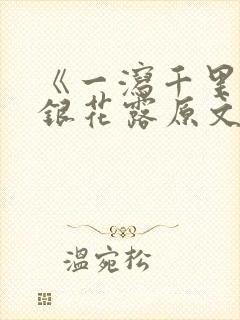 《一泻千里
银花露原文
温宛松